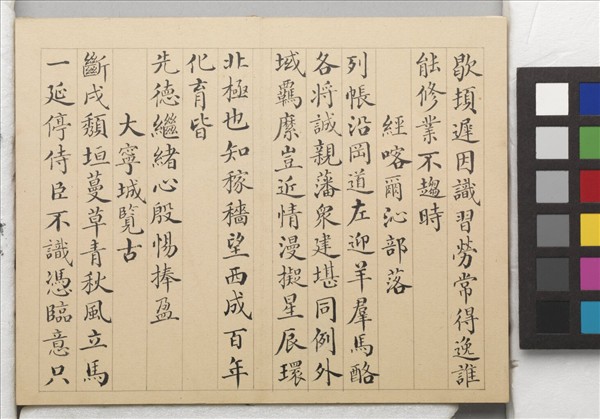 歇頓遲因識習勞常得逸誰
能修業不趨時
經喀爾沁部落
列帳沿岡道左迎羊羣馬酪
各將誠親藩衆建堪同例外
域羈縻豈近情漫擬星辰環
北極也知稼穡望西成百年
化育皆
先德繼緒心殷惕捧盈
大寧城覽古
斷戍頹垣蔓草青秋風立馬
一延停侍臣不識憑臨意只